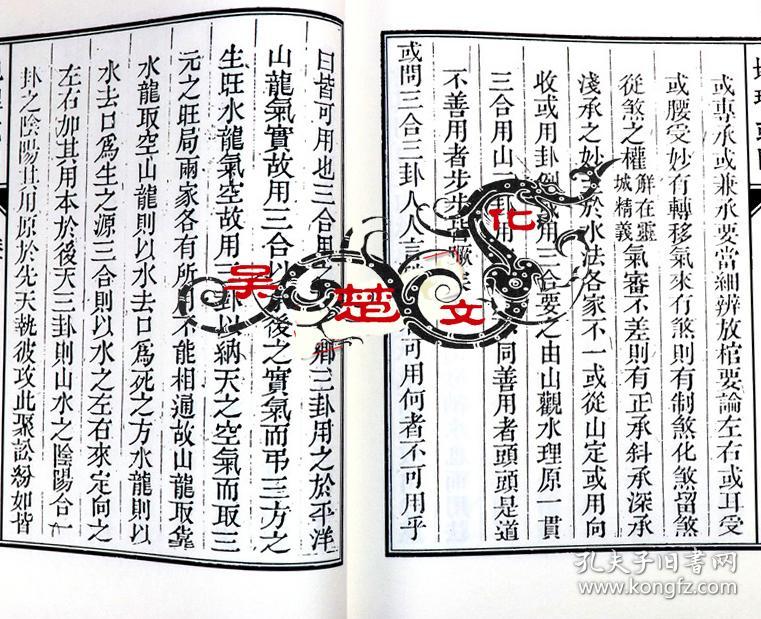 或專承或兼承要當細辨放棺要論左右或耳受
或腰受妙有轉移氣來有煞則有制煞化煞留煞
從煞之權 解在靈城精義 氣審不差則有正承斜承深承
淺承之妙 於水法各家不一或從山定或用向
收或用卦 用三合要之由山觀水理原一貫
三合用山 卦用 同善用者頭頭是道
不善用者步步
或問三合三卦人人言 可用何者不可用乎
曰皆可用也三合用 三卦用之於平洋
山龍氣實故用三合以 後之實氣而弔三方之
生旺水龍氣空故用 卦以納天之空氣而取三
元之旺局兩家各有所 不能相通故山龍取靠
水龍取空山龍則以水去口為死之方水龍則以
水去口為生之源三合則以水之左右來定向之
左右加其用本於後天三卦則山水之陰陽合一
卦之陰陽其用原於先天執彼攻此聚訟紛如皆
吴楚文化
孔夫子旧书网
www.kongfz.com